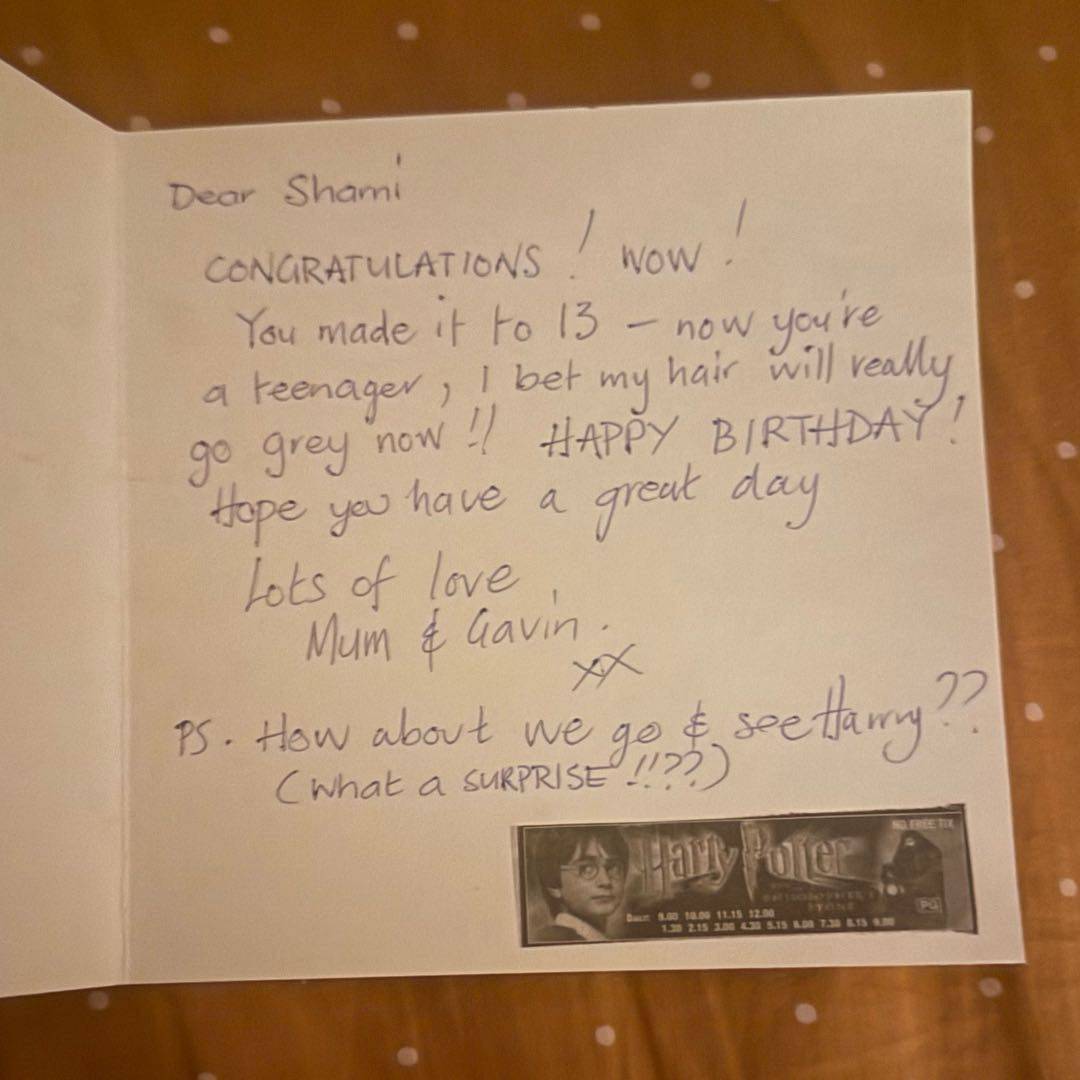 Dear Shami
CONGRATULATIONS! WOW!
You made it to 13 – now you're
a teenager, I bet my hair will really
go grey now!! HAPPY BIRTHDAY!
Hope you have a great day
Lots of love,
Mum & Gavin.
XX
PS. How about we go & see Harry??
(What a SURPRISE!!??)
NO FREE TIX
Harry Potter
STONE
PG
DAILY: 9.00 10.00 11.15 12.00
1.30 2.15 3.00 4.30 5.15 6.00 7.30 8.15 9.00